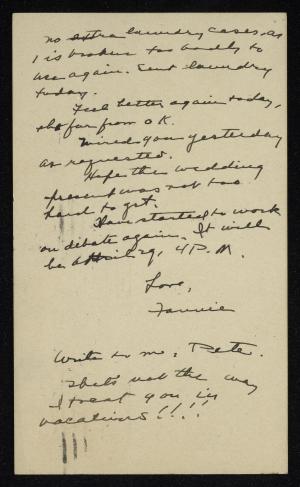 no extra laundry cases, as
1 is broken too badly to
use again. Sent laundry
today.
Feel better again today,
tho far from O.K.
Wired you yesterday
as requested.
Hope the wedding
present was not too
hard to get.
Have started to work
on debate again. It will
be April 29, 4 P.M.
Love,
Fannie
Write to me, Pete.
That's not the way
I treat you in
vacations!!!!